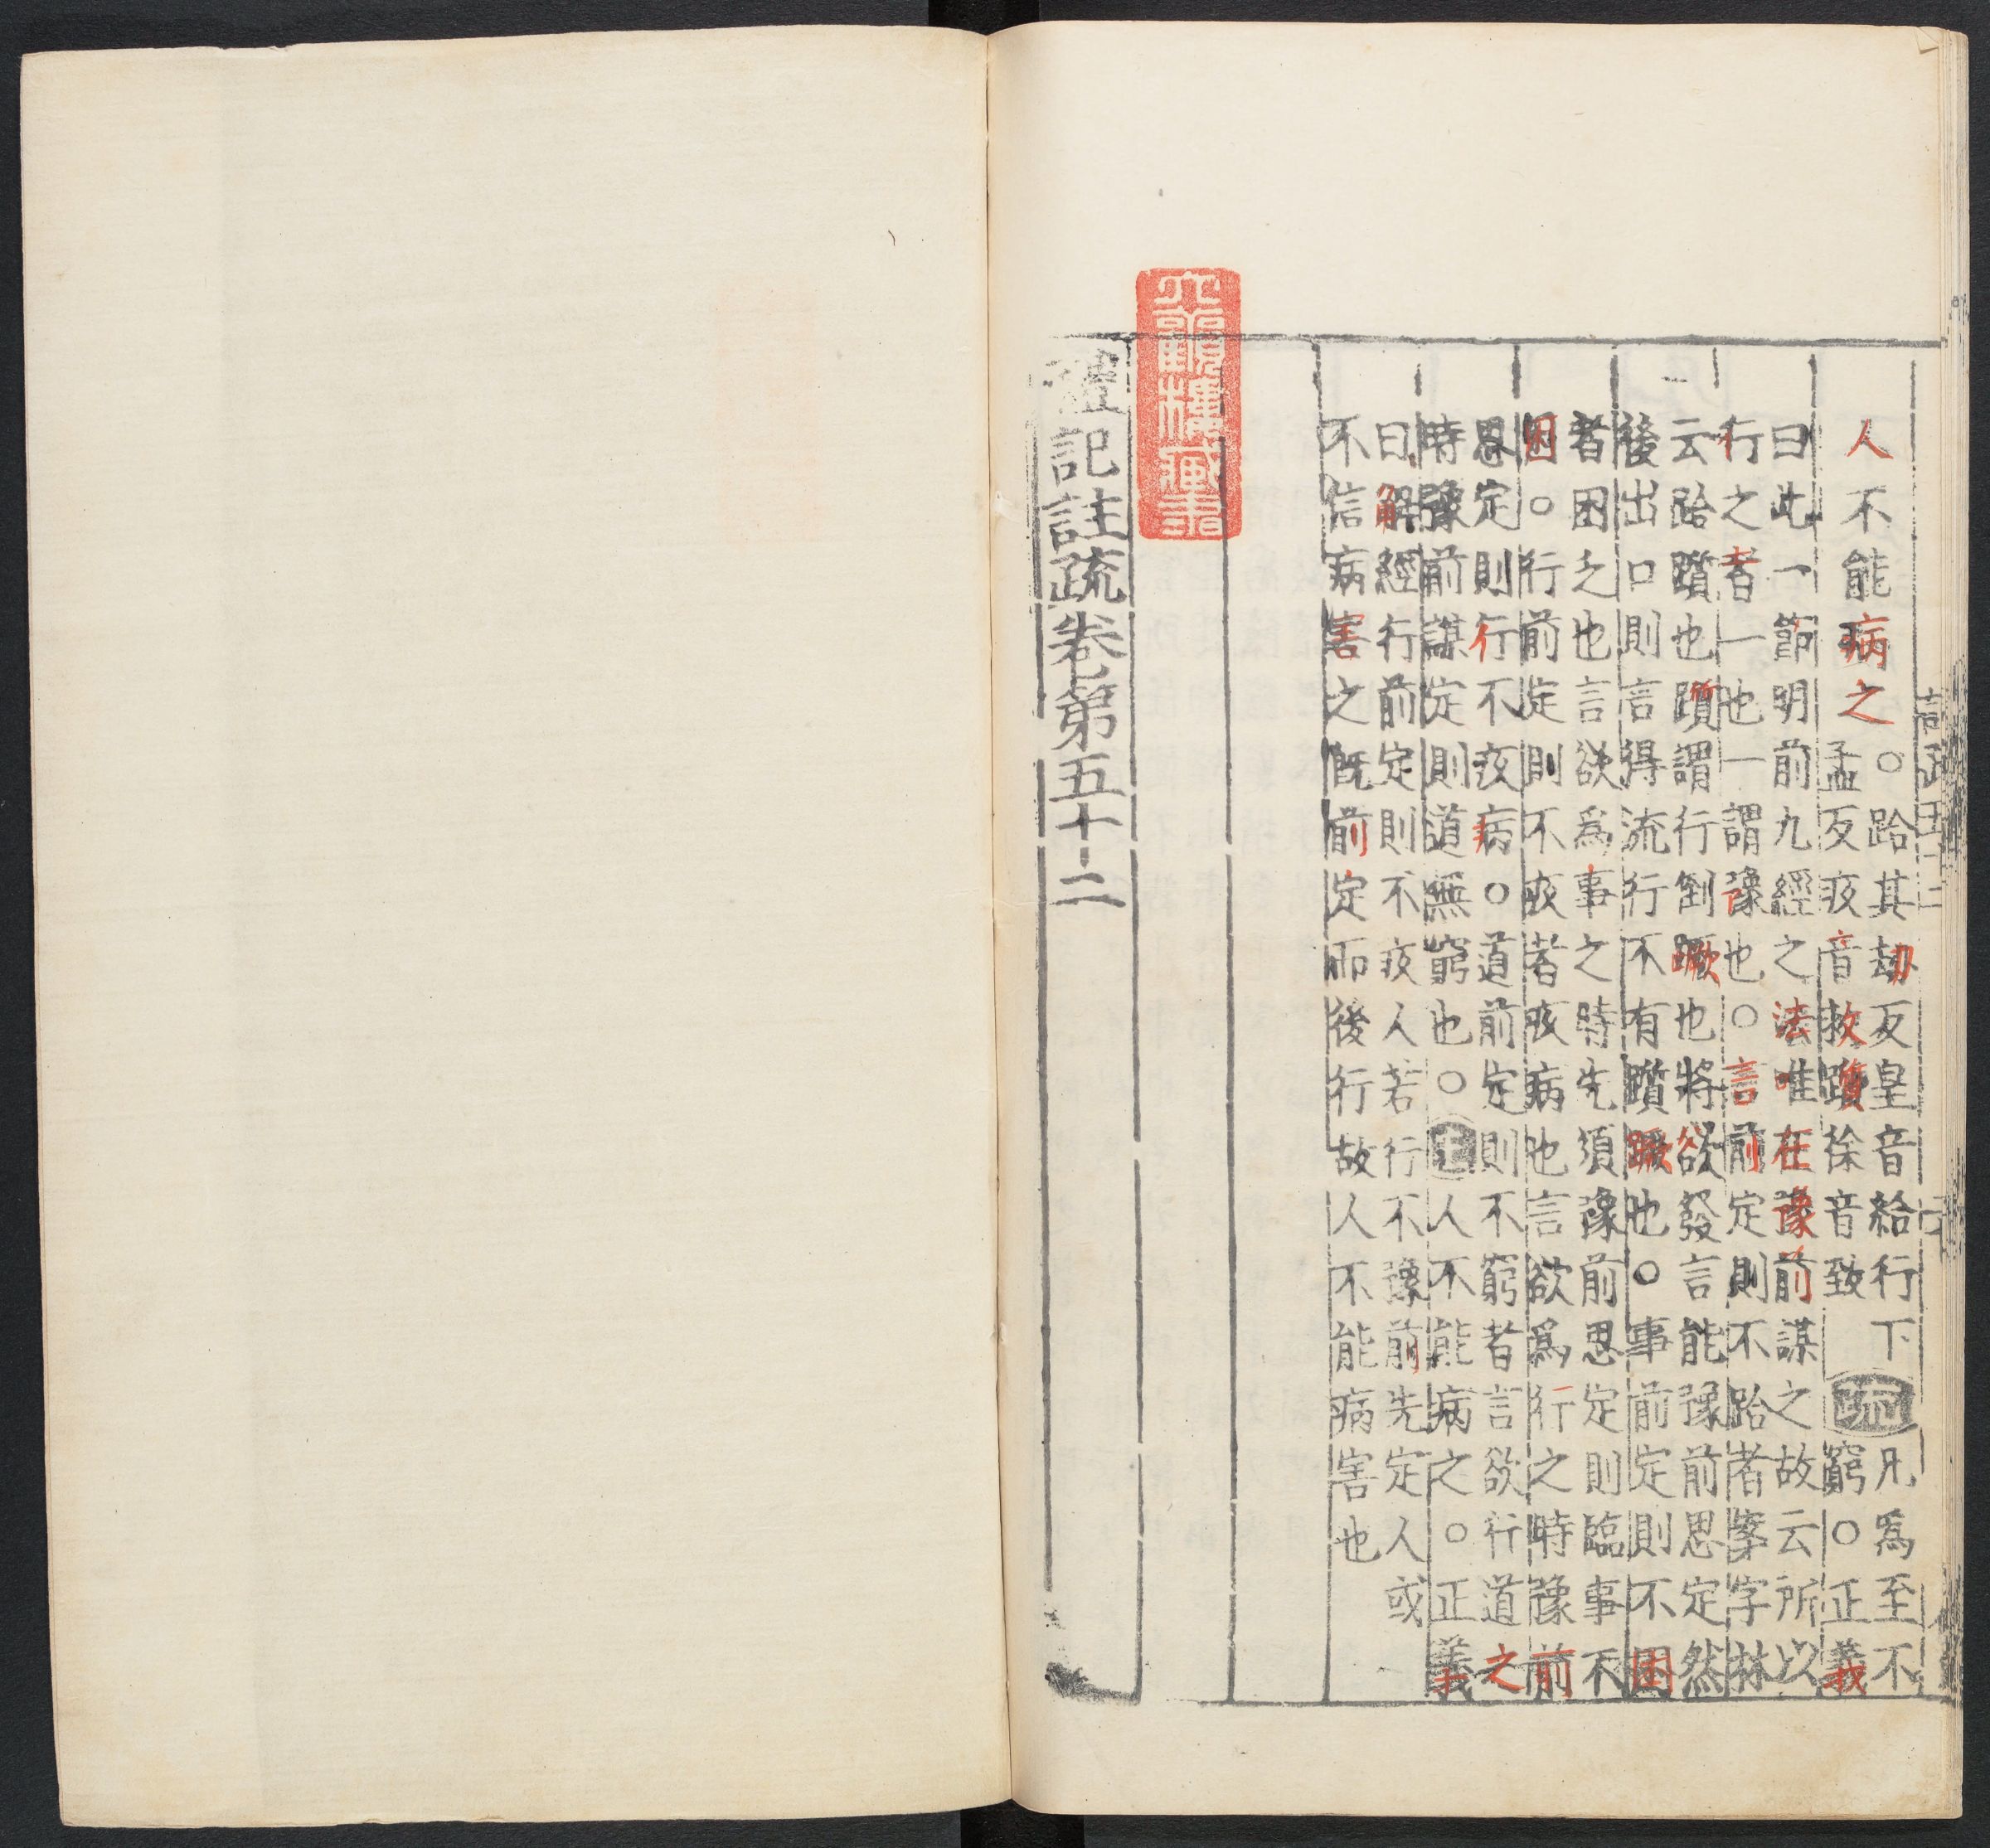 人不能病之
○跲其劫反皇音給行下
孟反疚音救躓徐音致
疏
凡爲至不
窮○正義
曰此一節明前九經之法唯在豫前謀之故云所以
行之者一也一謂豫也○言前定則不跲者案字林
云跲躓也躓謂行倒蹶也將欲發言能豫前思定然
後出口則言得流行不有躓蹶也○事前定則不困
者困乏也言欲爲事之時先須豫前思定則臨事不
困○行前定則不疚者疚病也言欲爲行之時豫前
思定則行不疚病○道前定則不窮者言欲行道之
時豫前謀定則道無窮也○注人不能病之○正義
曰解經行前定則不疚人若行不豫前先定人或
不信病害之既前定而後行故人不能病害也
六觀樓藏書
禮記註疏卷第五十二